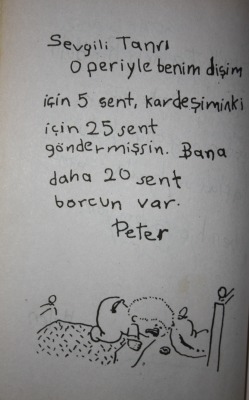 Sevgili Tanrı
O periyle benim dişim
için 5 sent, kardeşiminki
için 25 sent
göndermişsin. Bana
daha 20 sent
borcun var.
Peter